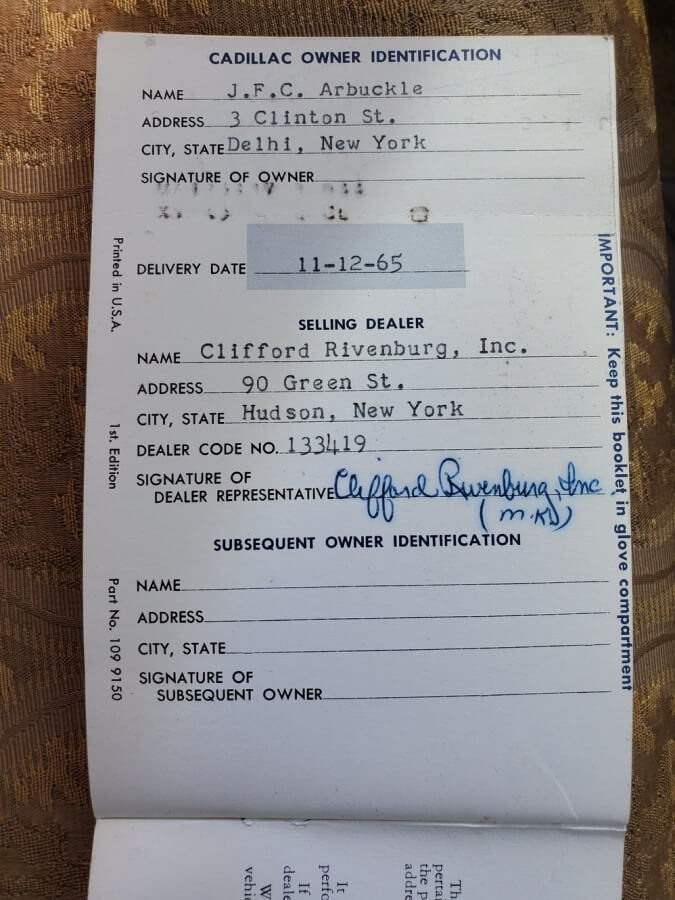 CADILLAC OWNER IDENTIFICATION
NAME J.F.C. Arbuckle
ADDRESS 3 Clinton St.
CITY, STATE Delhi, New York
SIGNATURE OF OWNER
DELIVERY DATE 11-12-65
SELLING DEALER
NAME Clifford Rivenburg, Inc.
ADDRESS 90 Green St.
CITY, STATE Hudson, New York
DEALER CODE NO. 133419
SIGNATURE OF
DEALER REPRESENTATIVE Clifford Rivenburg, Inc.
SUBSEQUENT OWNER IDENTIFICATION
NAME
ADDRESS
CITY, STATE
SIGNATURE OF
SUBSEQUENT OWNER
Printed in U.S.A.
1st. Edition
Part No. 109 9150
IMPORTANT: Keep this booklet in glove compartment
Th
pertai
the p
addre
It
perfo
If
deale
W
vehic